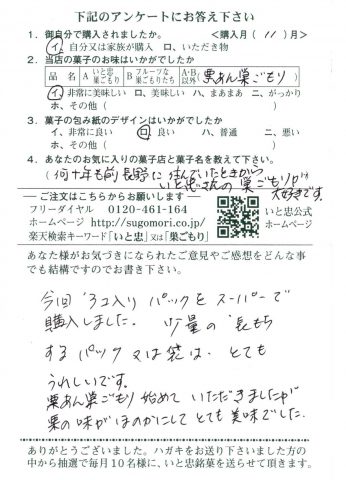 下記のアンケートにお答え下さい
1．御自分で購入されましたか。 ＜購入月（ 11 ）月＞
イ、自分又は家族が購入 ロ、いただき物
2．当店の菓子のお味はいかがでしたか
品 名 A いと忠巣ごもり B フルーツな巣ごもりたち A・B以外（栗あん巣ごもり）
イ、非常に美味しい ロ、美味しい ハ、まあまあ ニ、がっかり
ホ、その他（ ）
3．菓子の包み紙のデザインはいかがでしたか
イ、非常に良い ロ、良い ハ、普通 ニ、悪い
ホ、その他（ ）
4．あなたのお気に入りの菓子店と菓子名を教えて下さい。
（何十年も前長野に住んでいたときから
いと忠さんの巣ごもりが
大好きです。
ご注文はこちらからお願いします
フリーダイヤル 0120-461-164
ホームページ http://sugomori.co.jp/
楽天検索キーワード「いと忠」又は「巣ごもり」
いと忠公式
ホームページ
あなた様がお気づきになられたご意見やご感想をどんな事
でも結構ですのでお書き下さい。
今回 3コ入り パックを スーパーで
購入しました。 少量の 長もち
する パック 又は 袋は、とても
うれしいです。
栗あん巣ごもり 始めて いただきましたが
栗の味がほのかにして とても 美味でした。
ありがとうございました。ハガキをお送り下さいました方の
中から抽選で毎月10名様に、いと忠銘菓を送らせて頂きます。